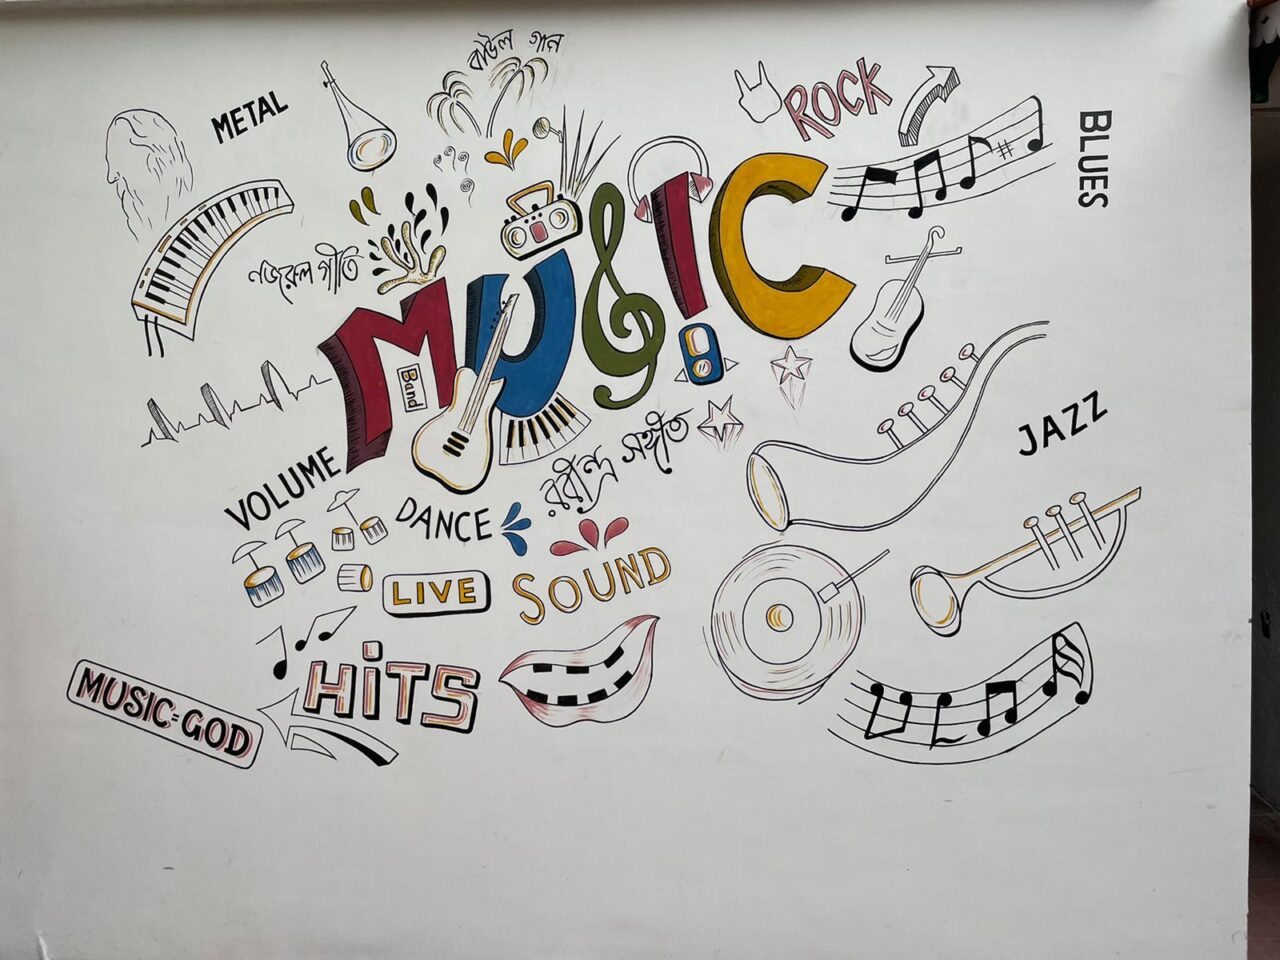 বাউল গান
METAL
ROCK
BLUES
নজরুল গীতি
MUSIC
Band
রবীন্দ্র সঙ্গীত
JAZZ
VOLUME
DANCE
LIVE
SOUND
HiTS
MUSIC=GOD